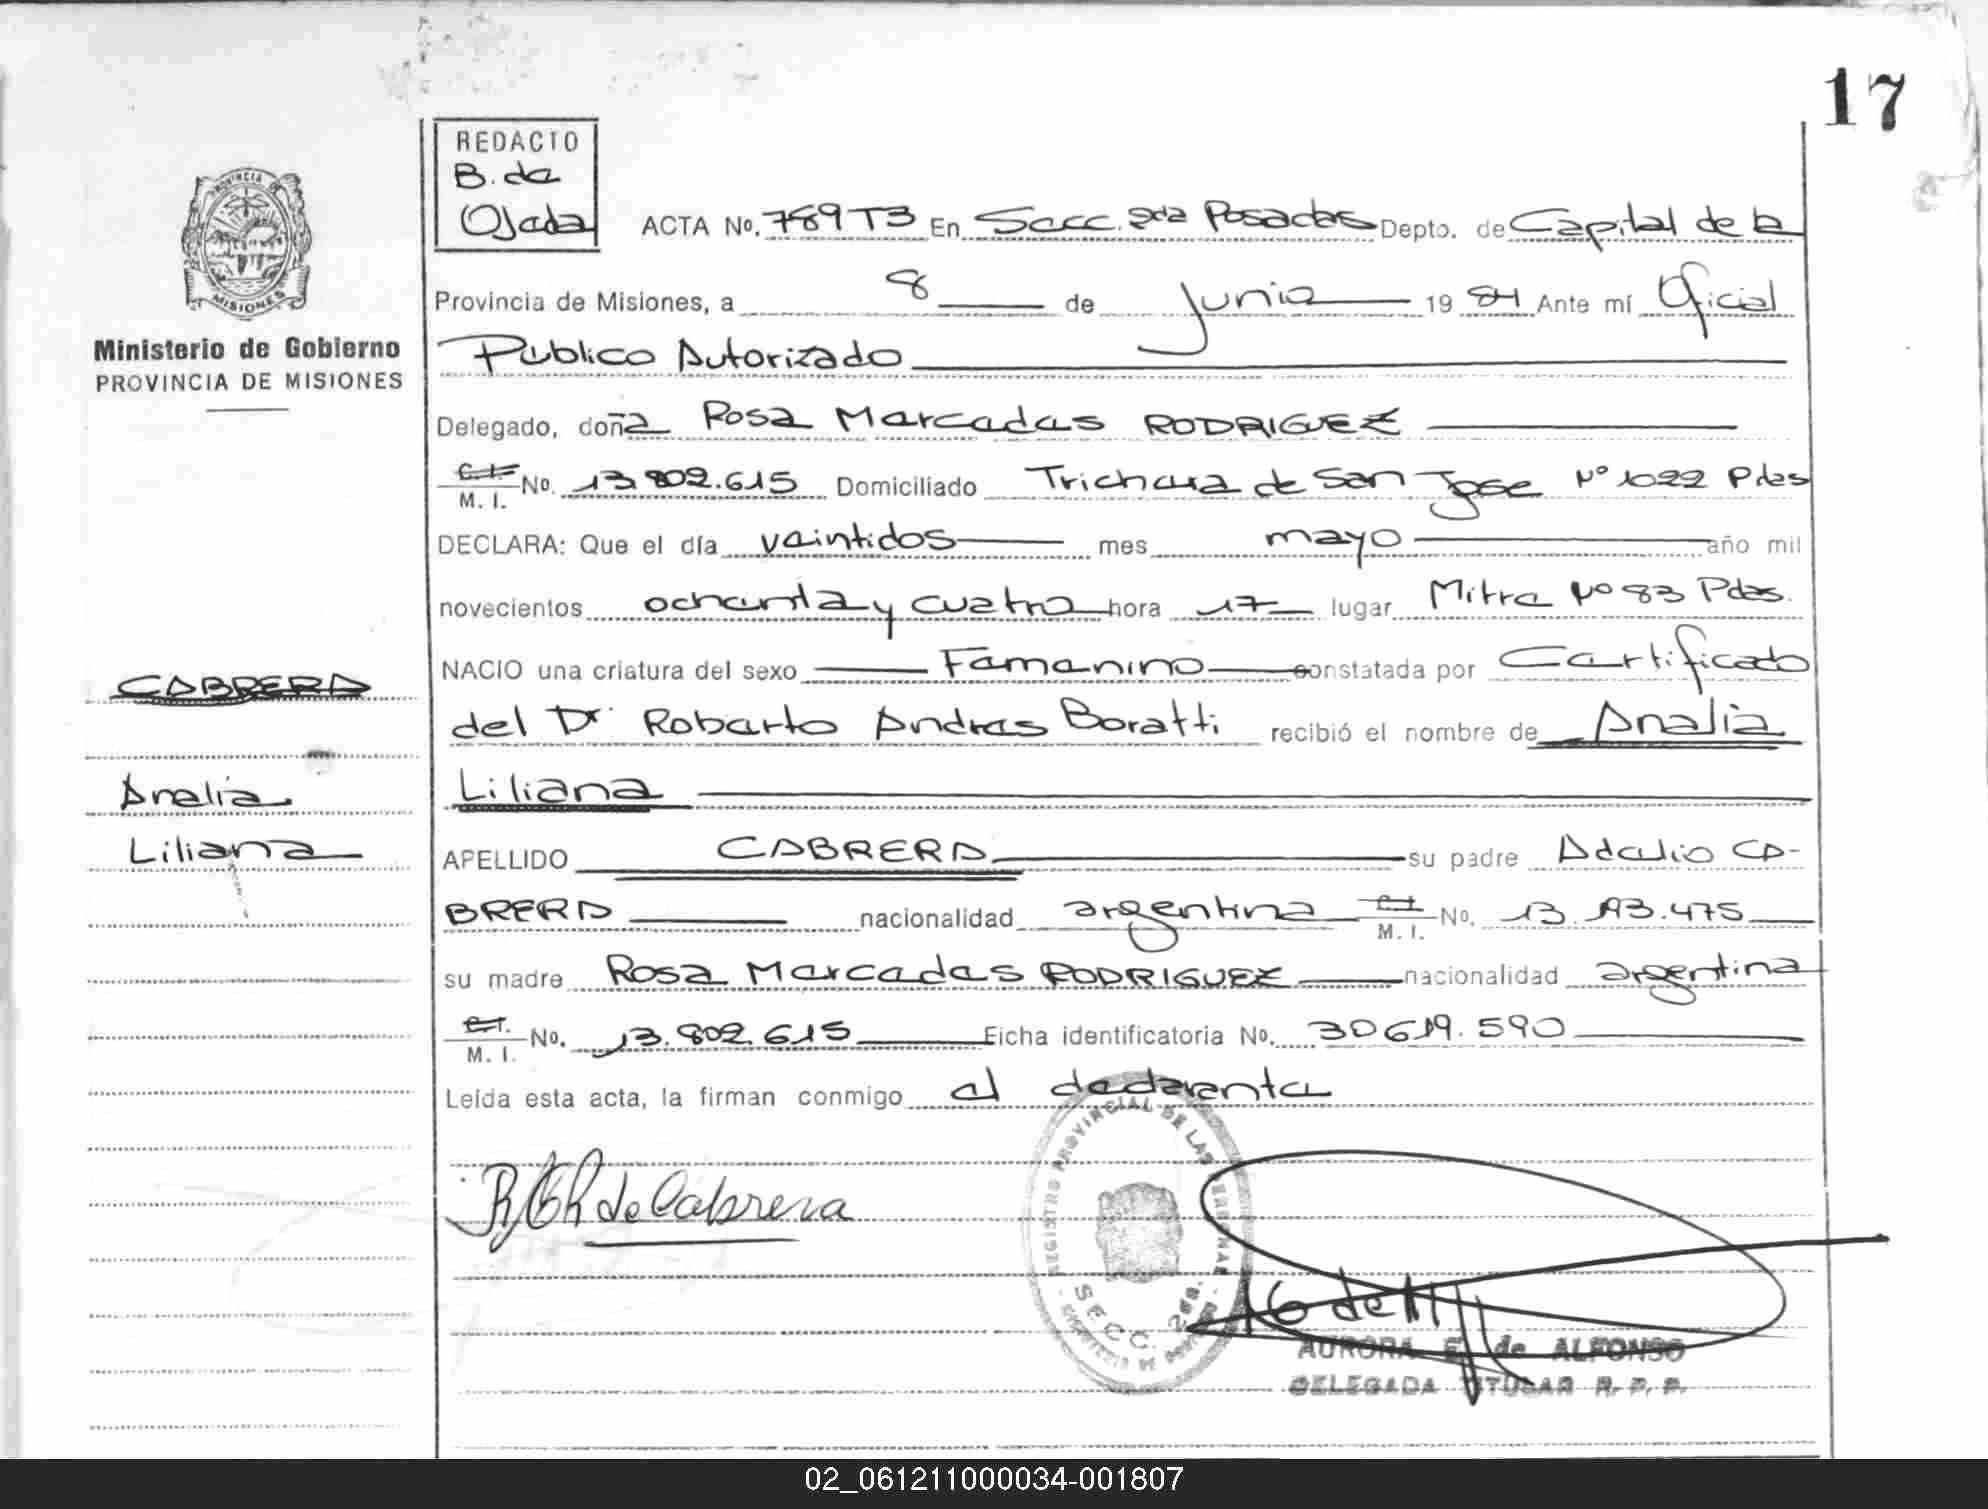 17
REDACTO
B. de
Ojeda
PROVINCIA DE
MISIONES
Ministerio de Gobierno
PROVINCIA DE MISIONES
ACTA No. 789T3 En Secc. 2da Posadas Depto. de Capital de la
Provincia de Misiones, a 8 de Junio 1984 Ante mí Oficial
Publico Autorizado
Delegado, doña Rosa Mercedes RODRIGUEZ
C.I. M. I. No. 13.802.615 Domiciliado Trichera de San Jose Nº 1022 Pdas
DECLARA: Que el día veintidos mes mayo año mil
novecientos ochenta y cuatro hora 17 lugar Mitre Nº 83 Pdas.
NACIO una criatura del sexo Femenino constatada por Certificado
del Dr. Roberto Andres Boratti recibió el nombre de Analia
Liliana
APELLIDO CABRERA su padre Adelio CA-
BRERA nacionalidad argentina C.I. M. I. No. 13. .475
su madre Rosa Mercedes RODRIGUEZ nacionalidad argentina
C.I. M. I. No. 13.802.615 Ficha identificatoria No. 30619.590
Leída esta acta, la firman conmigo el declarente
CABRERA
Analia
Liliana
de Cabrera
REGISTRO PROVINCIAL DE LAS PERSONAS
SECC. 2da.
AURORA E. de ALFONSO
DELEGADA TITULAR R. P. P.
02_061211000034-001807